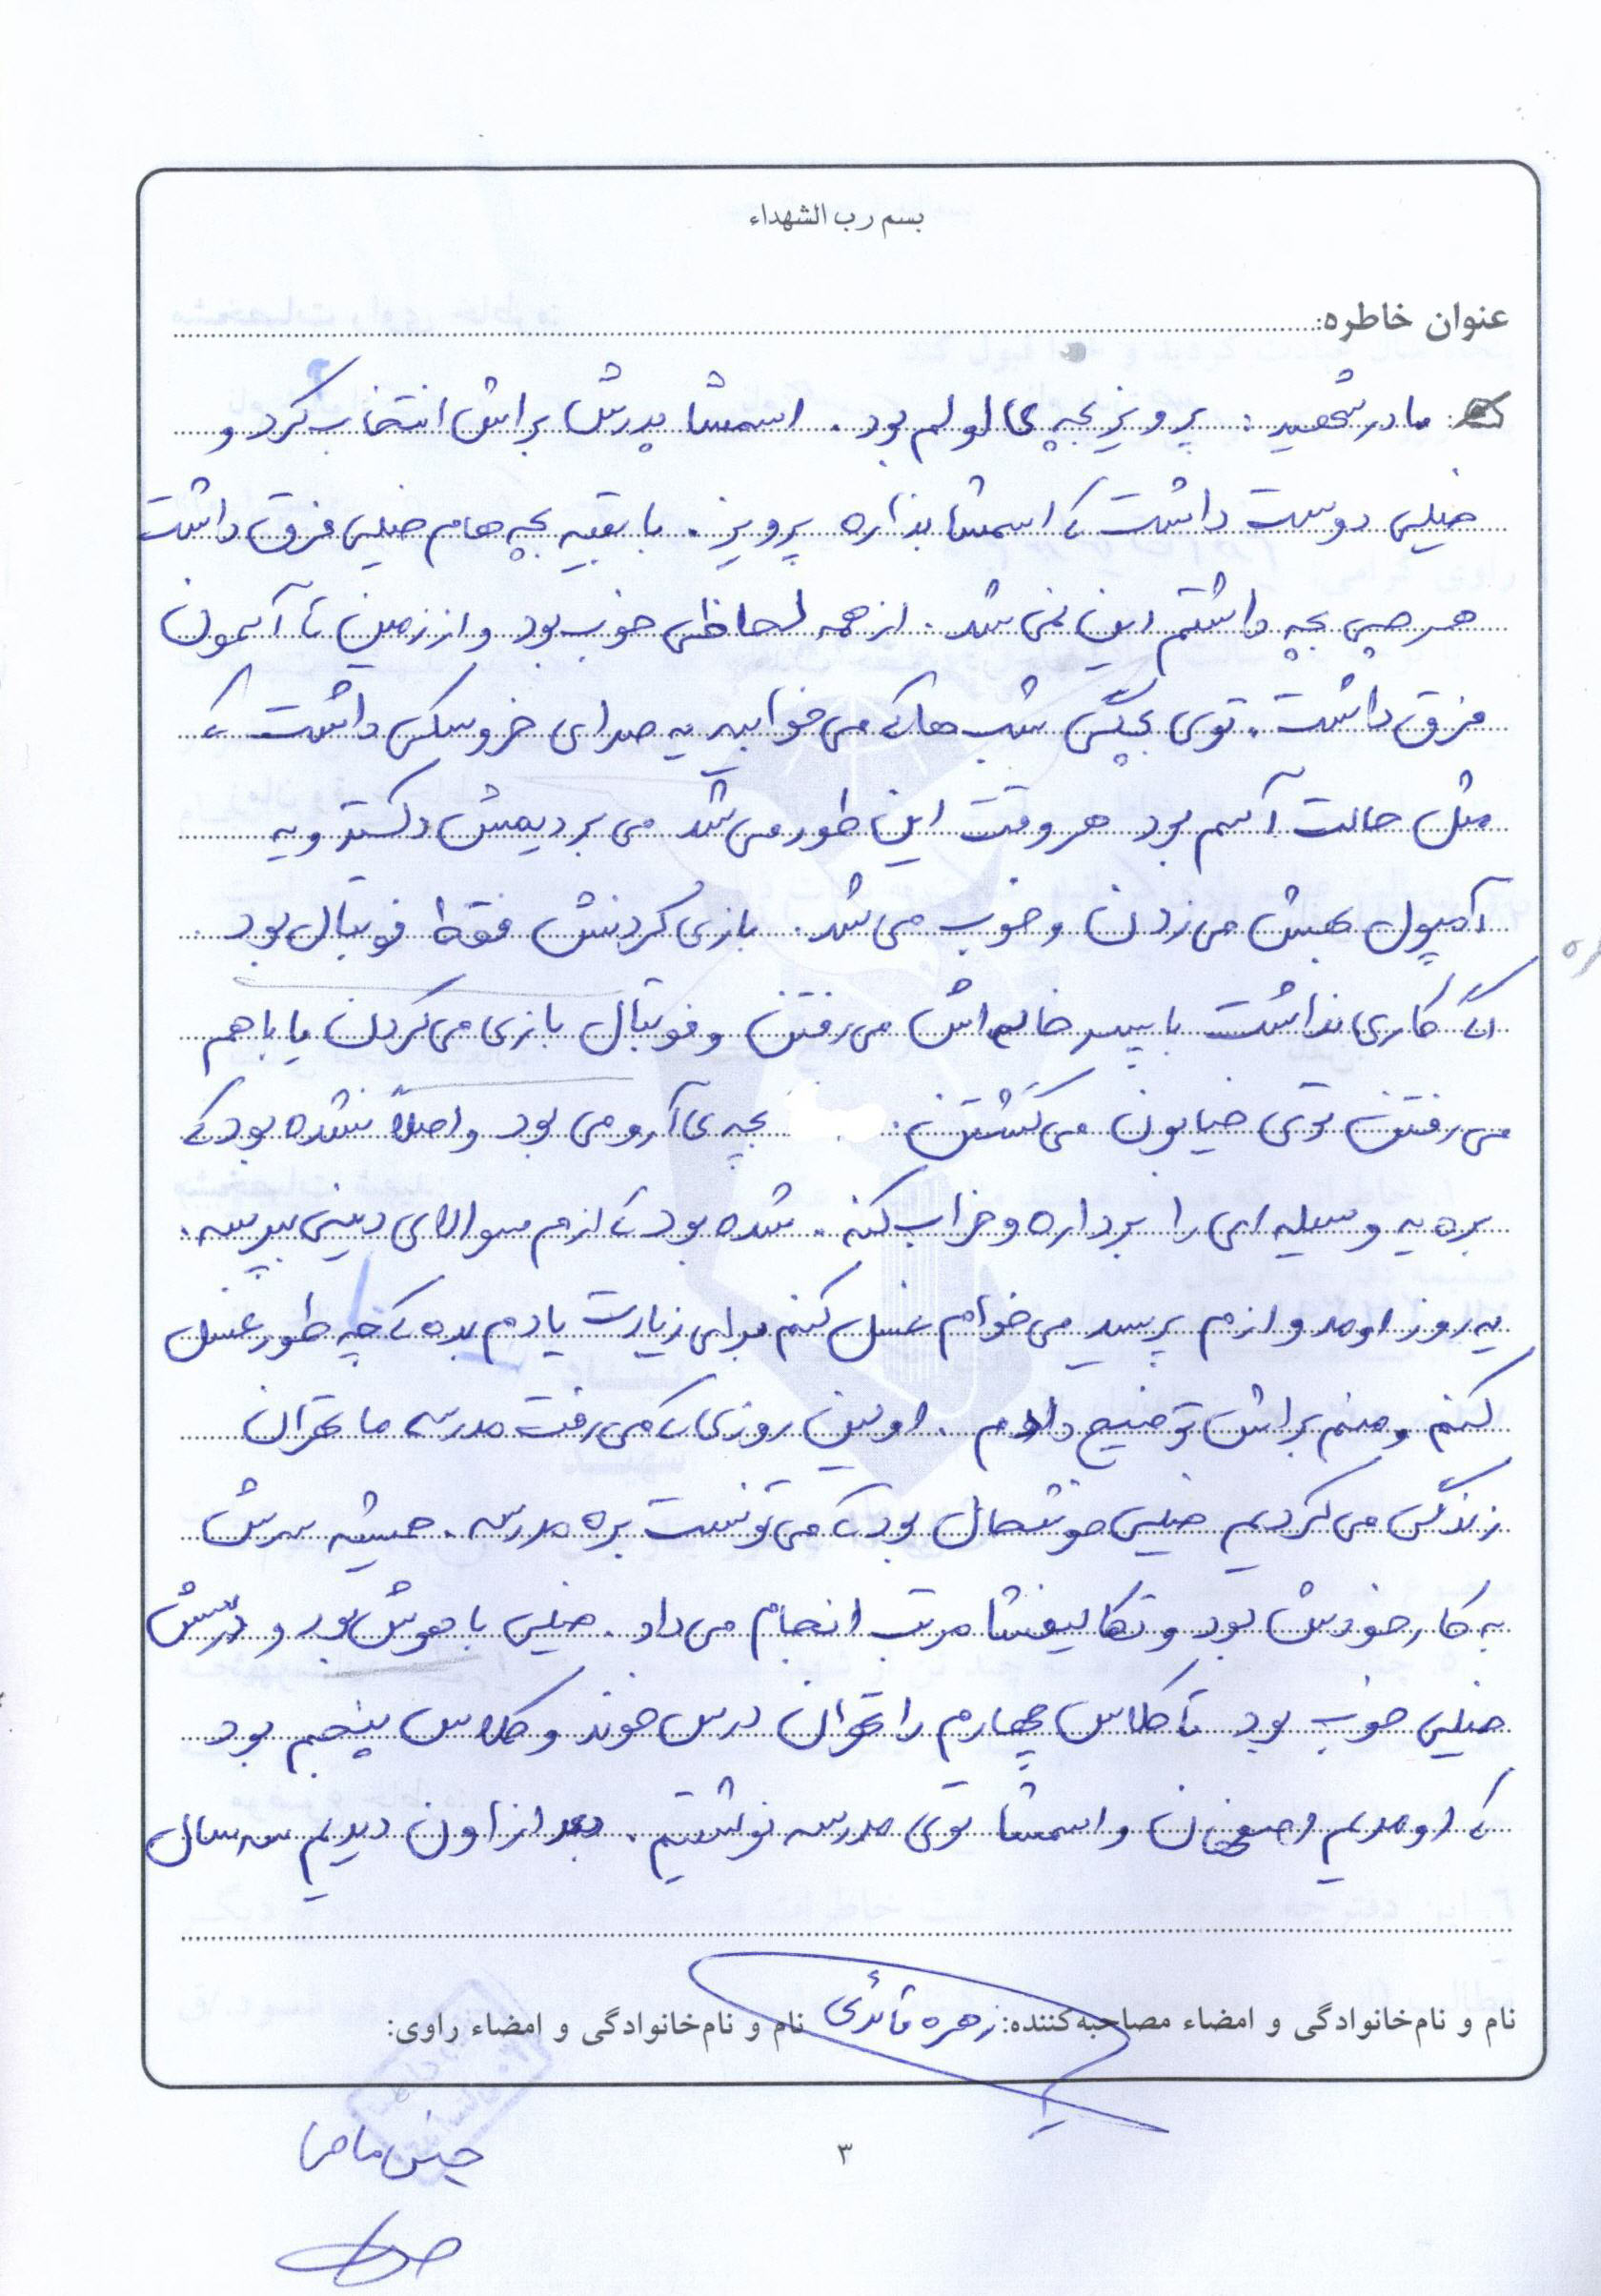 بسم رب الشهداء
عنوان خاطره:
مادر شهید: پرویز بچه ی اولم بود. اسمشا پدرش براش انتخاب کرد و
خیلی دوست داشت که اسمشا بذاره پرویز. با بقیه بچه هام خیلی فرق داشت
هر چی بچه داشتم این نمی شد. از همه لحاظی خوب بود و از زمین تا آسمون
فرق داشت. توی بچگی شب ها که می خوابید یه صدای خروسکی داشت که
مثل حالت آسم بود هر وقت این طور می شد می بردیمش دکتر و یه
آمپول بهش می زدن و خوب می شد. بازی کردنش فقط فوتبال بود.
اگه کاری نداشت با پسر خاله اش می رفتن و فوتبال بازی می کردن یا با هم
می رفتن توی خیابون می گشتن. بچه ی آرومی بود و اصلاً نشده بود که
بره یه وسیله ای را برداره و خراب کنه. شده بود که ازم سوالای دینی بپرسه.
یه روز اومد و ازم پرسید می خوام غسل کنم برای زیارت یادم بده که چه طور غسل
کنم و منم براش توضیح دادم. اولین روزی که می رفت مدرسه ما تهران
زندگی می کردیم خیلی خوشحال بود که می تونست بره مدرسه. همیشه سرش
به کار خودش بود و تکالیفشا مرتب انجام می داد. خیلی با هوش بود و درسش
خیلی خوب بود تا کلاس چهارم را تهران درس خوند و کلاس پنجم بود
که اومدیم اصفهان و اسمشا توی مدرسه نوشتیم. بعد از اون دیدیم سه سال
نام و نام‌خانوادگی و امضاء مصاحبه‌کننده: زهره قائدی نام و نام‌خانوادگی و امضاء راوی:
۳